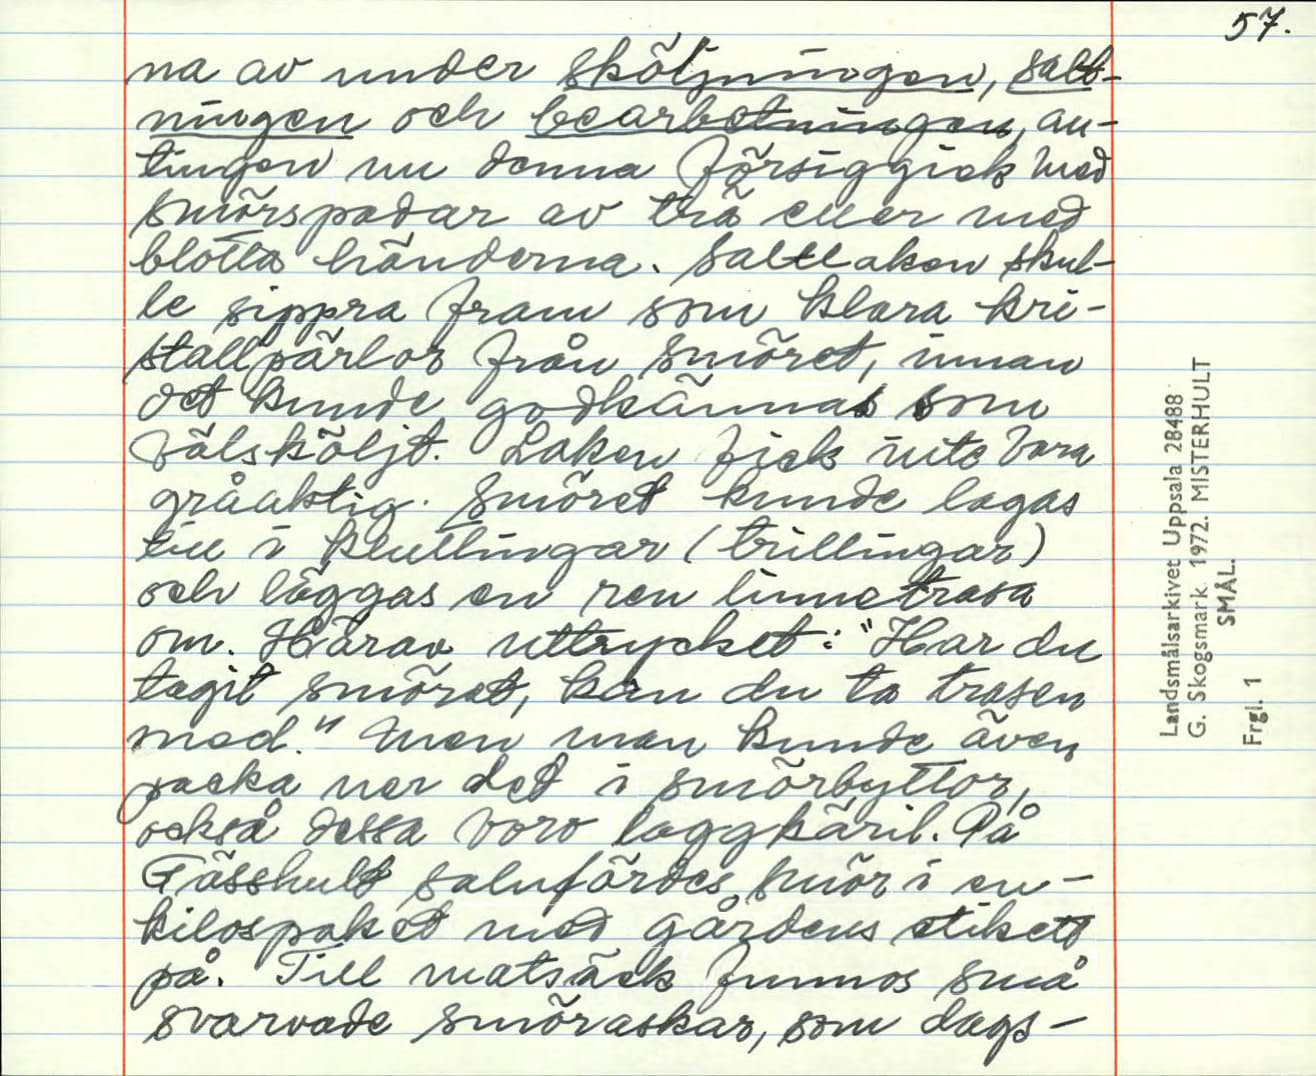 57.
na av under sköljningen, salt-
ningen och bearbetningen, an-
tingen nu denna försiggick med
smörspadar av trä eller med
blotta händerna. Saltlaken skul-
le sippra fram som klara kri-
stallpärlor från smöret, innan
det kunde godkännas som
välsköljt. Laken fick inte vara
gråaktig. Smöret kunde lagas
till i kluttingar (trillingar)
och läggas en ren linnetrasa
om. Härav uttrycket: "Har du
tagit smöret, kan du ta trasen
med." Men man kunde även
packa ner det i smörbyttor,
också dessa voro laggkäril. På
Fässhult salufördes smör i en-
kilospaket med gårdens etikett
på. Till matsäck funnos små
svarvade smöraskar, som dags-
Landsmålsarkivet Uppsala 28488
G. Skogsmark 1972. MISTERHULT
SMÅL.
Frgl. 1